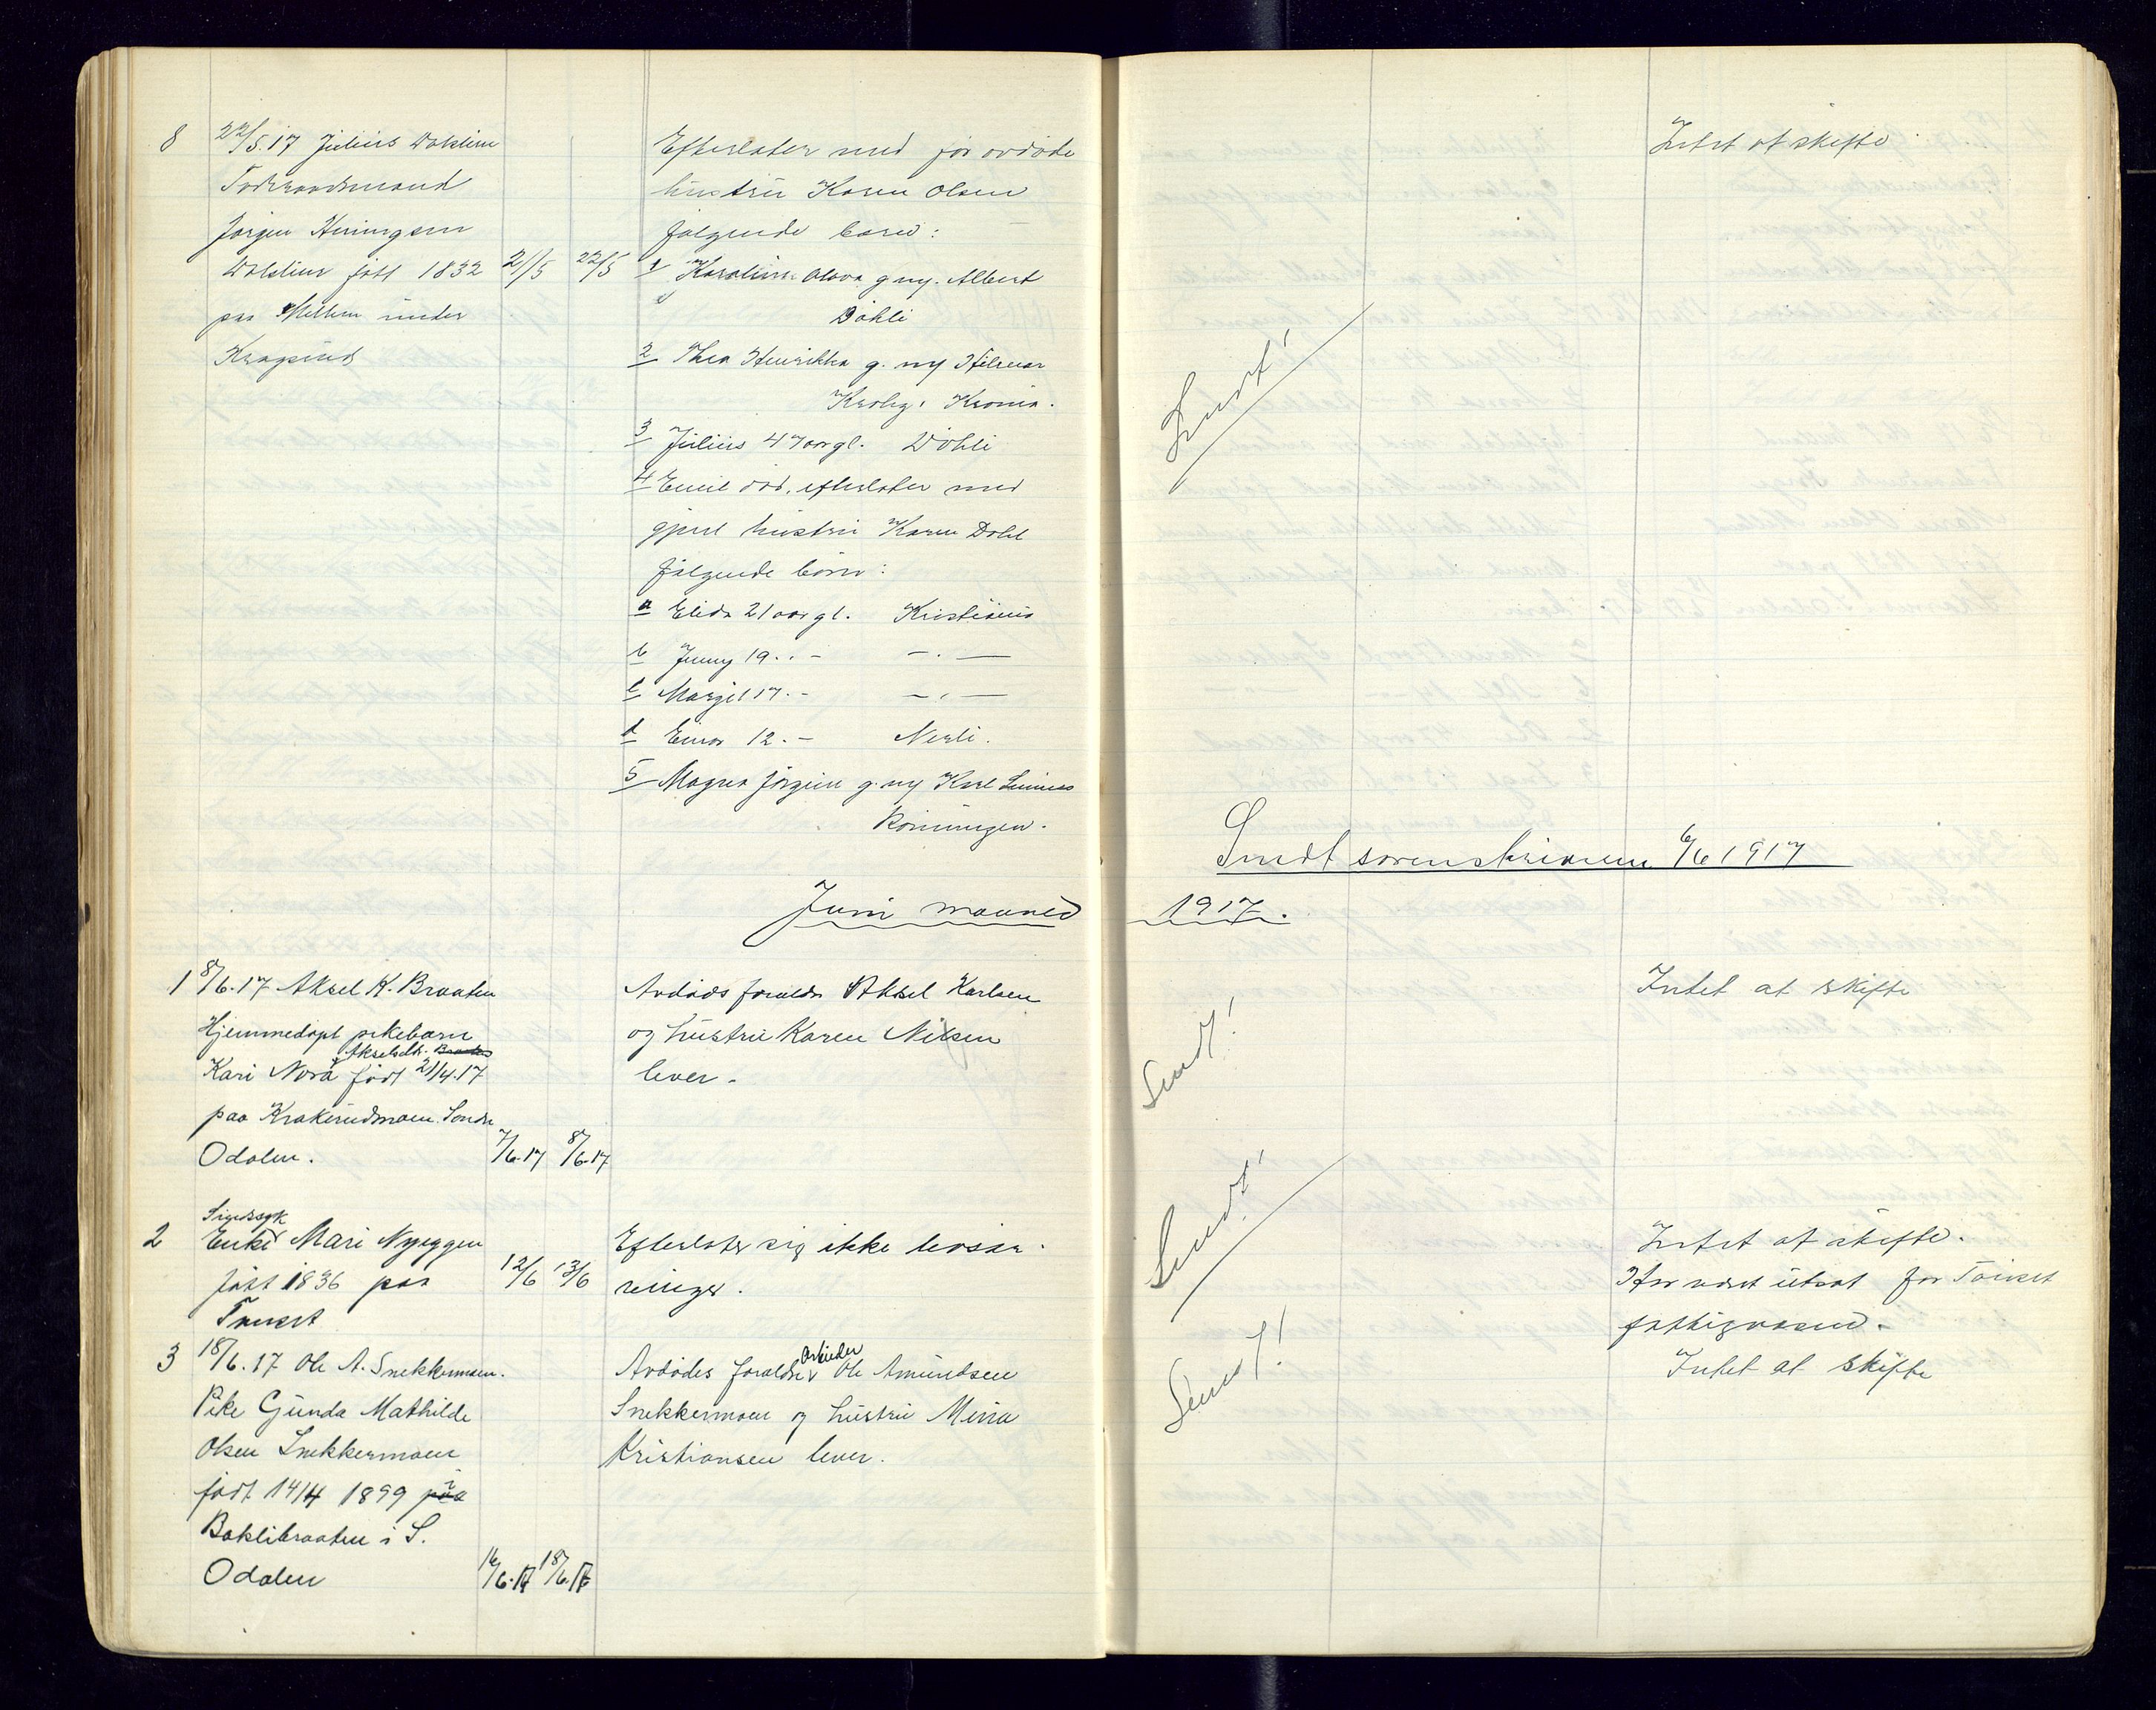 8
22/5.17 Julius Dahlien
Foderaadsmand
Jørgen Henningsen
Dahlien født 1832 21/5 22/5
paa Mellem under
Kragerud
Efterlater med før avdøde
hustru Karen Olsen
følgende børn:
1 Karoline Olava g. m. Albert
Døhli
2 Thea Henrikka g. m. Hilmar
Krohg, Kr.ania.
3 Julius 47 aar gl. Døhli
4 Emil død, efterlater med
gjenl. hustru Karen Dahl
følgende børn:
a Elida 21 aar gl. Kristiania
b Jenny 19 . . - - . -
c Margit 17 . - - . -
d Einar 12 . - Nerli.
5 Magna Jørgine g. m. Karl Linius
Rønningen.
Intet at skifte
Sendt!
Sendt sorenskriveren 6/6 1917
Juni maaned 1917.
1 8/6.17 Aksel K. Braaten
Hjemmedøpt pikebarn
Akselsdt. Braaten
Kari Nora født 21/4.17
paa Krakerudmoen Søndre
Odalen. 7/6.17 8/6.17
Avdødes foreldre Aksel Karlsen
og hustru Karen Nilsen
lever.
Sendt!
Intet at skifte
2
Sindssyk
Enke Mari Nyeggen
født 1836 paa 12/6 13/6
Trøset
Efterlater sig ikke livsar-
vinger.
Sendt!
Intet at skifte.
Har været utsat for
fattigvæsen.
3 18/6.17 Ole A. Snekkermoen.
Pike Gunda Mathilde
Olsen Snekkermoen
født 14/4 1899 paa i
Baklibraaten i S.
Odalen 16/6.17 18/6.17
Arbeider
Avdødes foreldre Ole Amundsen
Snekkermoen og hustru Mina
Kristiansen lever.
Sendt!
Intet at skifte